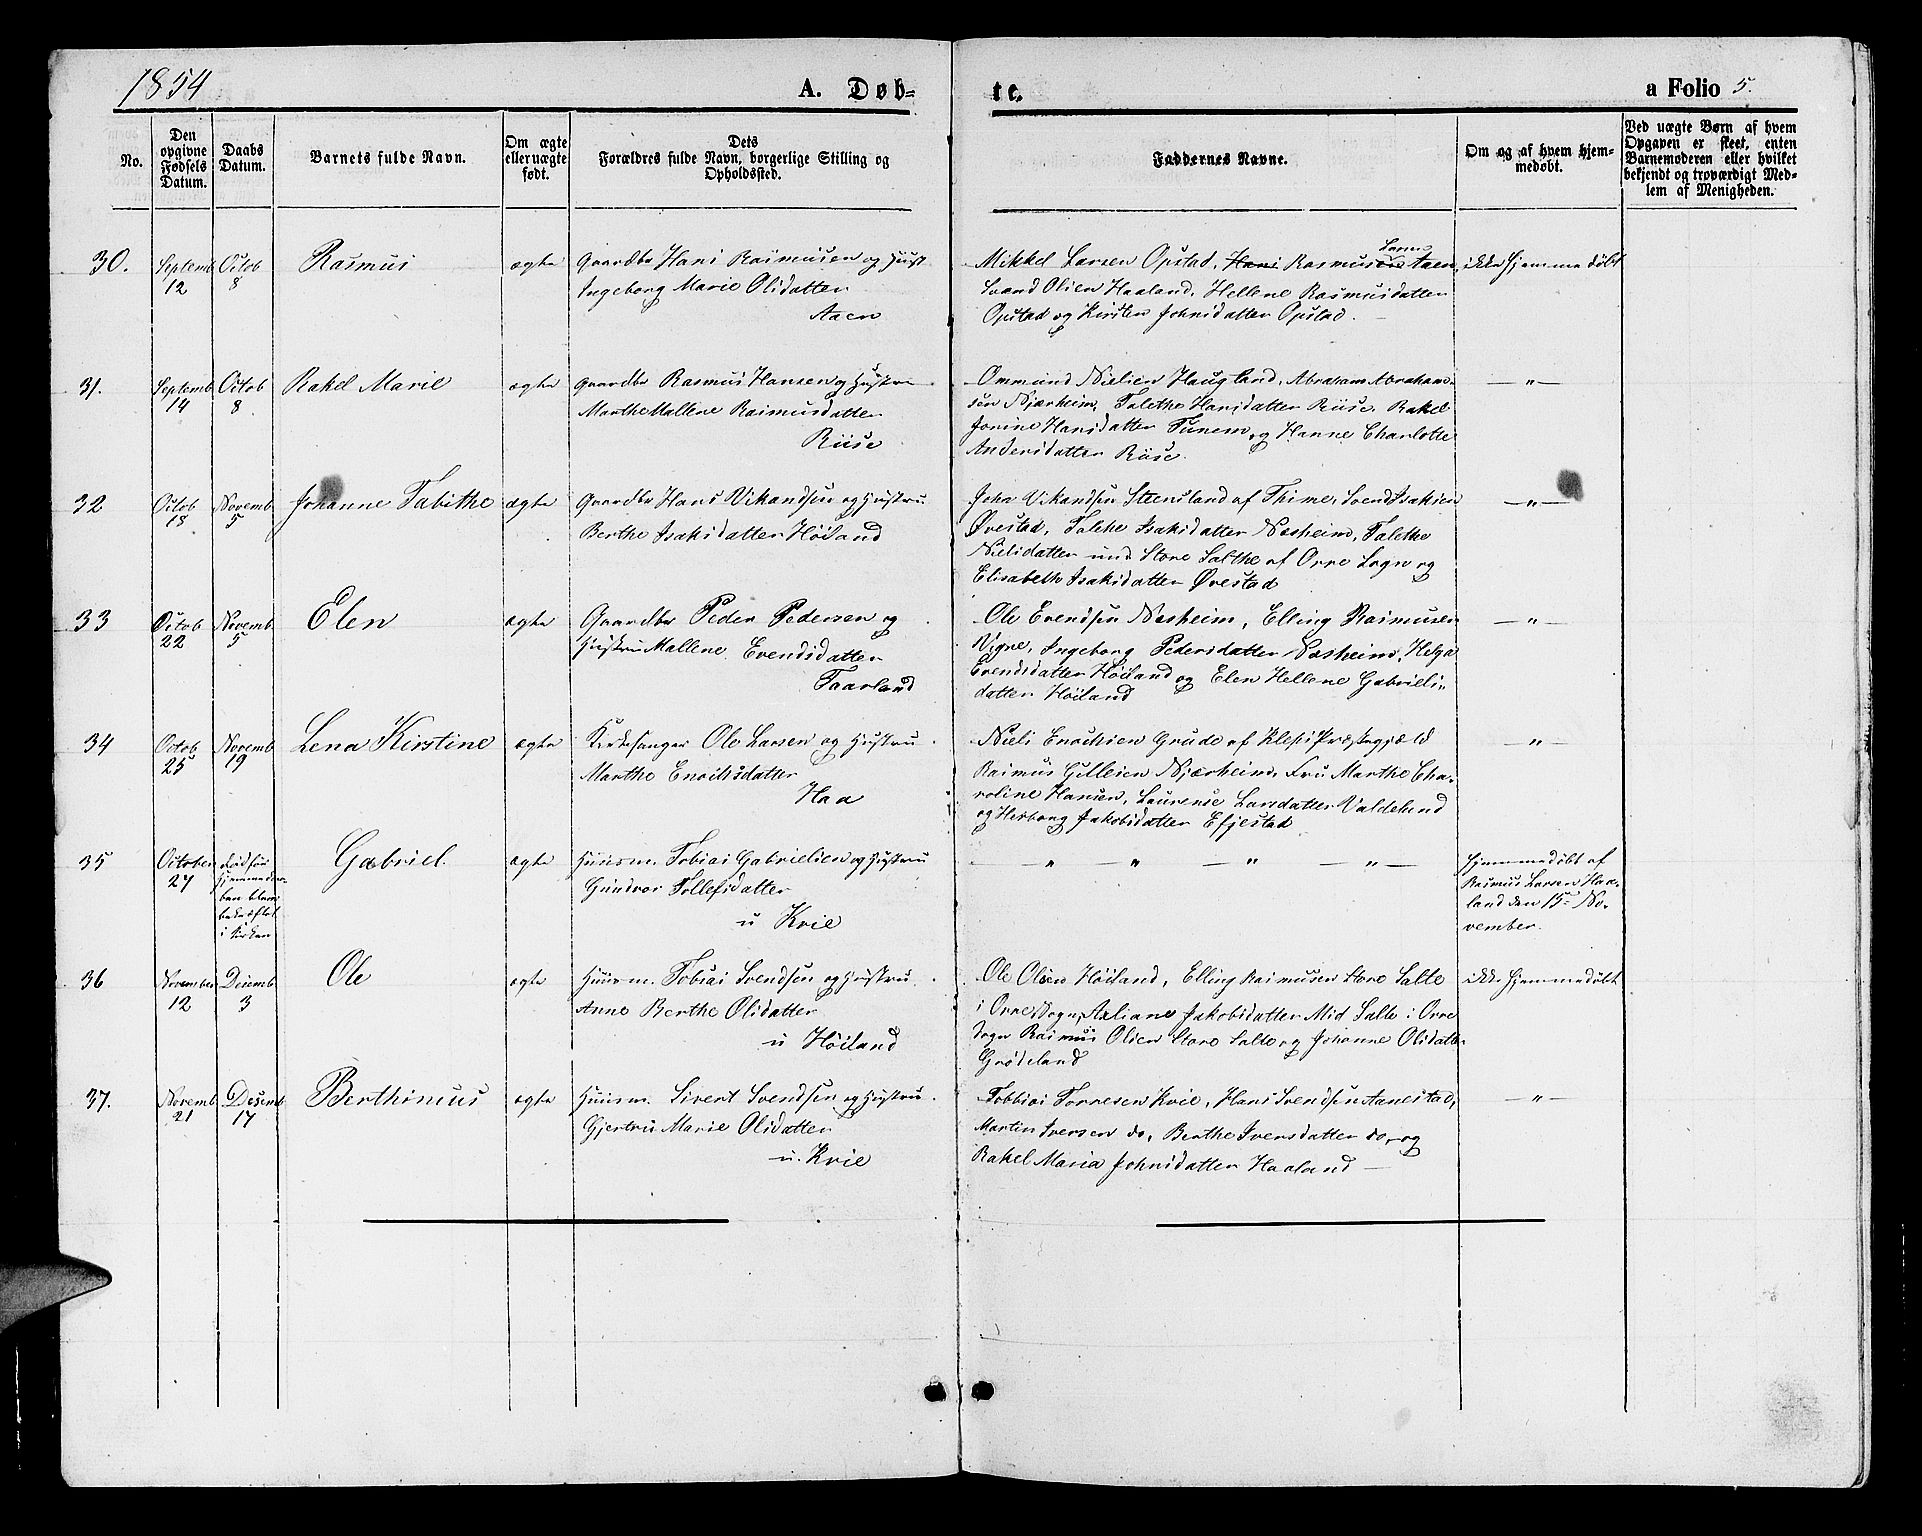 1854
A. Døb-
te.
a Folio 5.
No.
Den opgivne Fødsels Datum.
Daabs Datum.
Barnets fulde Navn.
Om ægte eller uægte født.
Dets Forældres fulde Navn, borgerlige Stilling og Opholdssted.
Faddernes Navne.
Om og af hvem hjemmedøbt.
Ved uægte Børn af hvem Opgaven er skeet, enten Barnemoderen eller hvilket bekjendt og troværdigt Medlem af Menigheden.
30. Septemb 12 Octob 8 Rasmus ægte Gaardbr Hans Rasmusen og Hust
Ingeborg Marie Olsdatter
Aaen
Mikkel Larsen Opstad, Hans Rasmusen Aaen,
Svend Olsen Haaland, Hellene Rasmusdatter
Opstad og Kirsten Johnsdatter Opstad.
ikke Hjemmedøbt
31. Septemb 14 Octob 8 Rakel Marie ægte Gaardbr Rasmus Hansen og Hustru
Marthe Mallene Rasmusdatter
Riise
Ommund Nielsen Haugland, Abraham Abraham-
sen Njærheim, Talethe Hansdatter Riise, Rakel
Jorine Hansdatter Tunem og Hanne Charlotte
Andersdatter Riise.
— " —
32 Octob 18 Novemb 5 Johanne Tabithe ægte Gaardbr Hans Vikandsen og Hustru
Berthe Isaksdatter Høiland
John Vikandsen Steensland af Thime, Svend Isaksen
Ørestad, Talethe Isaksdatter Næsheim, Talethe
Nielsdatter und Store Salthe af Orre Sogn og
Elisabeth Isaksdatter Ørestad
— " —
33 Octob 22 Novemb 5 Elen ægte Gaardbr Peder Pedersen og
Hustru Mallene Evendsdatter
Taarland
Ole Evendsen Næsheim, Elling Rasmusen
Vigre, Ingeborg Pedersdatter Næsheim, Helga
Evendsdatter Høiland og Elen Hellene Gabriels-
datter Høiland
— " —
34 Octob 25 Novemb 19 Lena Kirstine ægte Kirkesanger Ole Larsen og Hustru
Marthe Enochsdatter
Haa
Niels Enochsen Grude af Kleps Præstegjæld
Rasmus Gillesen Njærheim, Fru Marthe Cha-
roline Hansen, Laurense Larsdatter Valdeland
og Herborg Jakobsdatter Efjestad
— " —
35 October 27 Død før
Hjemmedaa-
ben blev
bekræftet
i Kirken
Gabriel ægte Huusm. Tobias Gabrielsen og Hustru
Gundvor Tollefsdatter
u Kvie
— " — " — " — " —
Hjemmedøbt af
Rasmus Larsen Haa-
land den 15de No-
vember.
36 November 12 Decemb 3 Ole ægte Huusm. Tobias Svendsen og Hustru
Anne Berthe Olsdatter
u Høiland
Ole Olsen Høiland, Elling Rasmusen Store Salte
i Orre Sogn, Axliane Jakobsdatter Mid Salte i Orre
Sogn Rasmus Olsen Store Salte og Johanne Olsdatter
Grødeland
ikke Hjemmedøbt
37. Novemb 21 Desemb 17 Berthinius ægte Huusm. Sivert Svendsen og Hustru
Gjertru Marie Olsdatter
u. Kvie
Tobbias Torresen Kvie, Hans Svendsen Aanestad,
Martin Iversen do, Berthe Iversdatter do, og
Rakel Maria Johnsdatter Haaland —
— " —